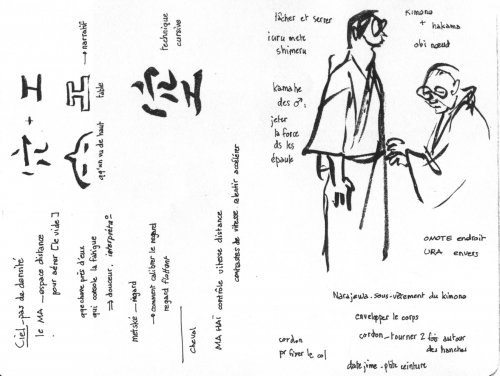 Ciel _ pas de densité
le MA _ espace distance
pour aérer [le vide]
穴 + 工
qqchose près d'eux
qui console la fatigue
⇒ douceur, interprétaº
qq'un vu de haut
table
→ narratif
空
technique
cursive
metsuké _ regard
→ comment utiliser le regard
regard flottant
cheval
MA HAÏ contrôle vitesse distance
contrastes de vitesse ralentir accélérer
lâcher et serrer
shimeru
kamahe
des ♂:
jeter
la force
ds les
épaules
Kimono
+
hakama
obi nœud
OMOTE endroit
URA envers
Narajuwa. sous-vêtement du kimono
envelopper le corps
cordon _ tourner 2 fois autour
des hanches
cordon
pr fixer le col
datejime _ ptite ceinture